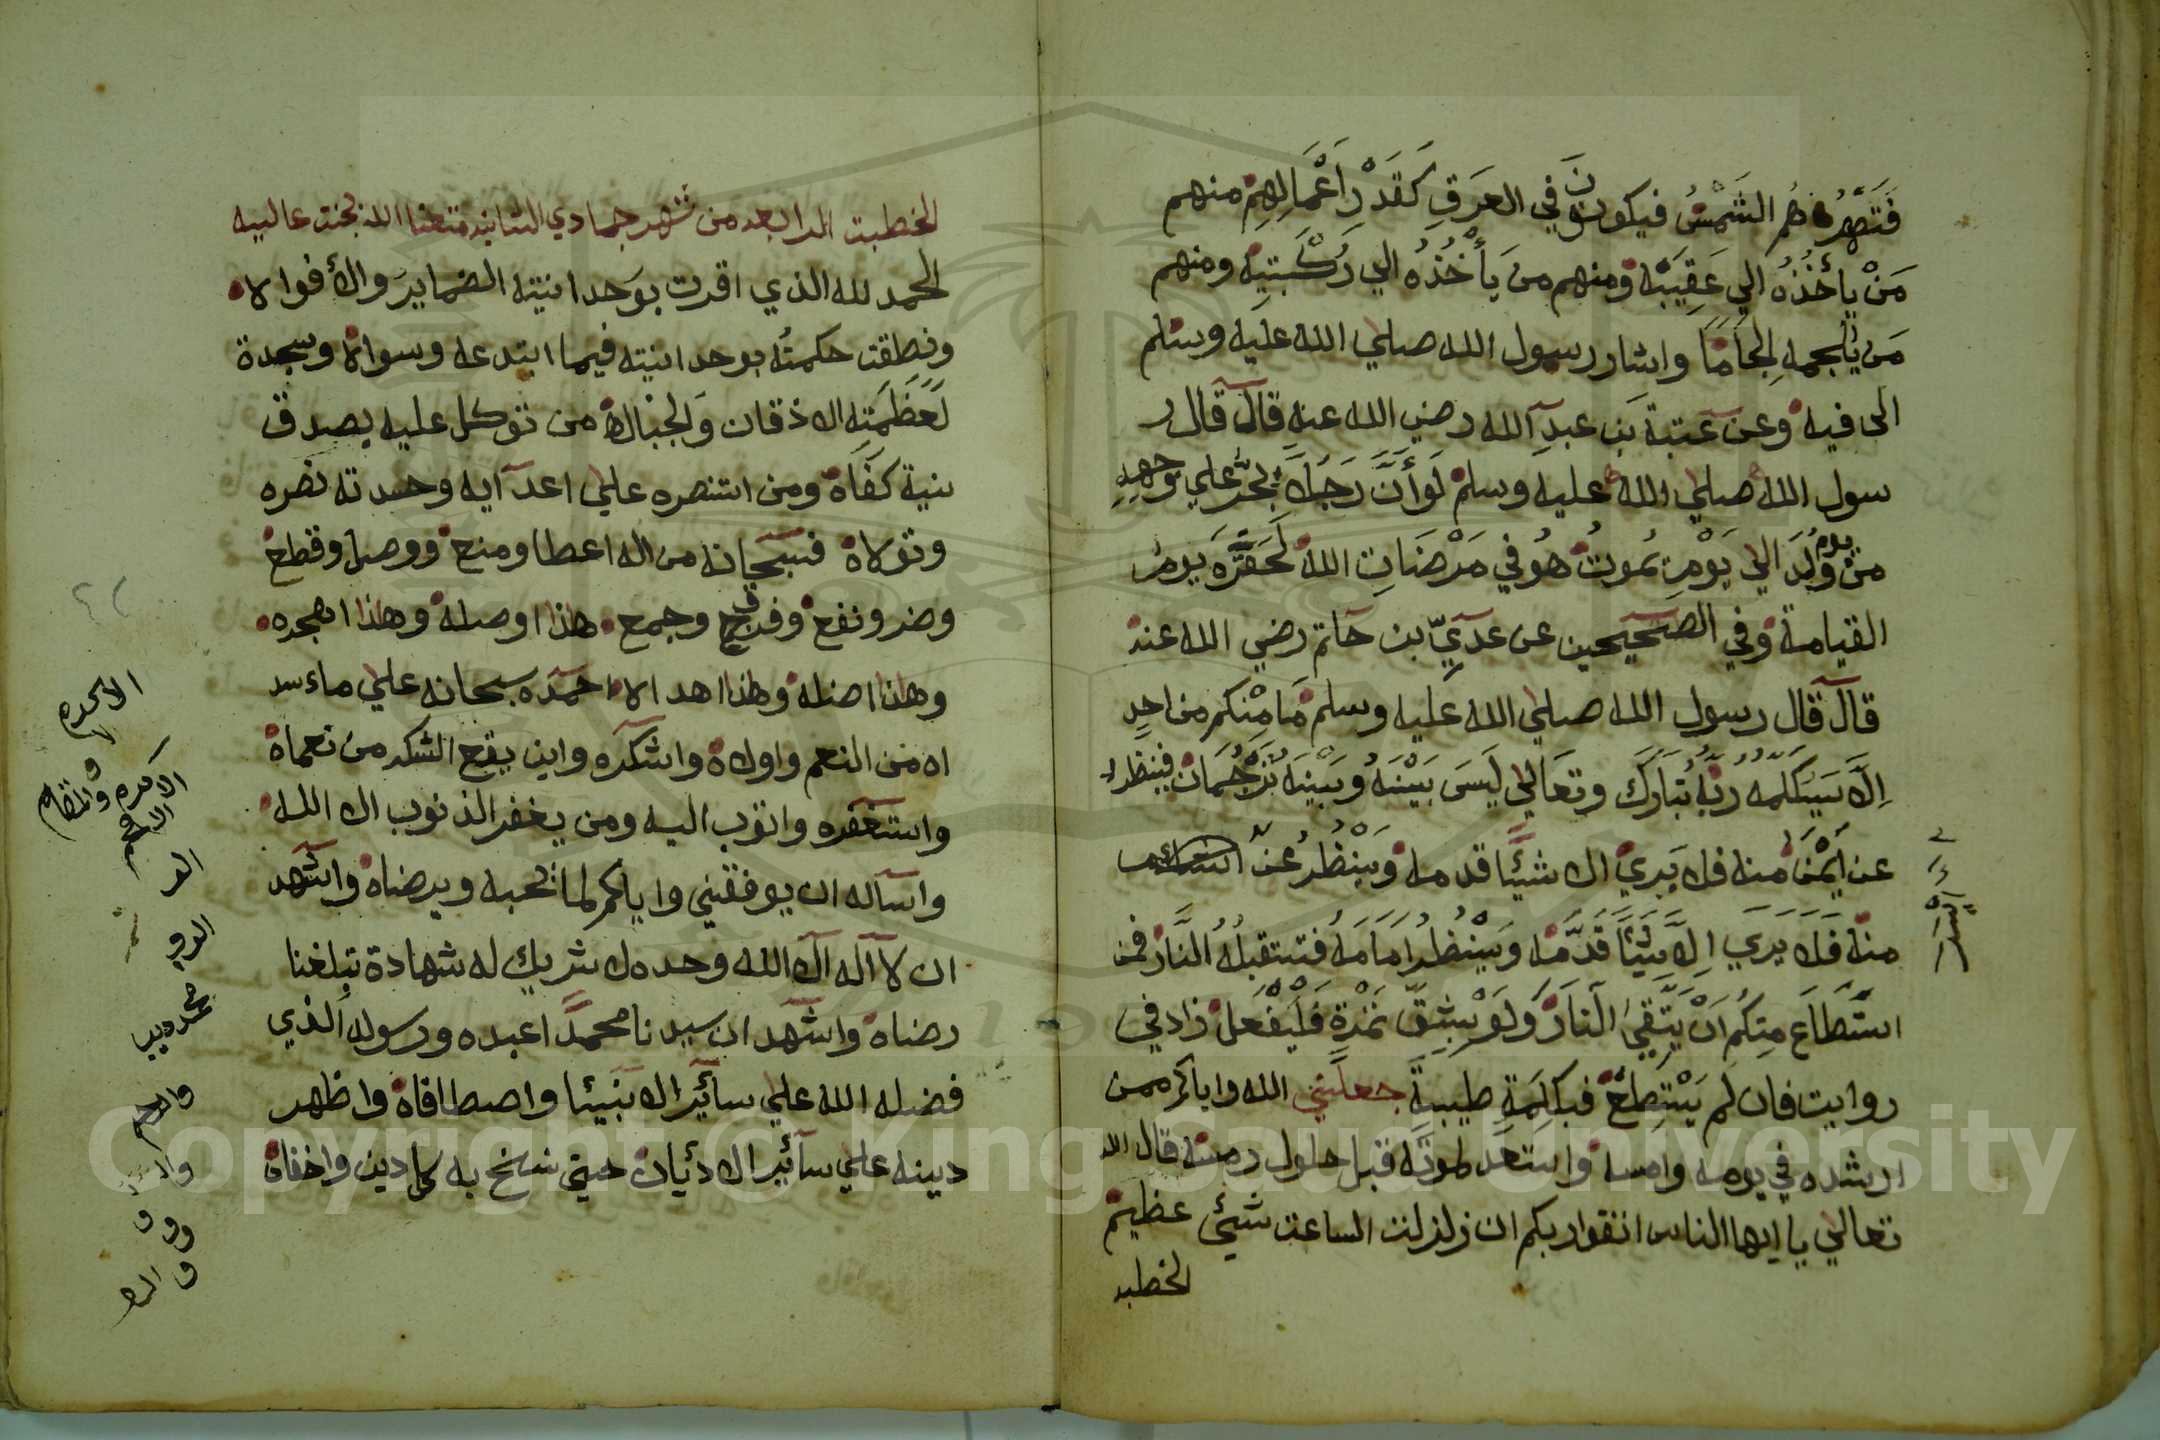 فَتَصْهَرُهُم الشَمْسُ فيكونون في العَرَقِ كَقَدْرِ اَعْمَالِهِمْ منهم
مَنْ يأخُذُهُ الي عَقِيبَيْه ومنهم من يَأْخُذُهُ الي رُكْبَتِيْه ومنهم
مَن يُلْجمه لِجَامًا واشار رسول الله صلي الله عليه وسلم
الى فيه وعن عتبة بن عبد الله رضي الله عنه قال قال ر
سول الله صلي الله عليه وسلم لَوْ أَنَّ رَجُلاً يَجُرُّ علي وجهه
من يوم وُلِدَ الي يَوْمِ يَموتُ هُو في مَرْضَاتِ الله لَحَقَّرَهُ يَومَ
القيامة وفي الصحيحين عن عديّ بن حاتم رضي الله عنه
قال قال رسول الله صلي الله عليه وسلم مَا مِنْكم من احدٍ
اِلاَّ سَيُكَلِّمُهُ رَبُّهُ تَبَارَكَ وتعَالي لَيسَ بَيْنَهُ وبَيْنِهُ تَرْجُمَان فينظر
عن اَيْمَنَ منه فلا يَرى الا شيئًا قدمه ويَنْظُرُ عن
منه فَلاَ يَرَي اِلاَّ شَيْئًا قَدَّمَهُ ويَنْظُرُ اَمَامَهُ فتستقبلُهُ النَّار فمن
استَطَاعَ مِنكُم اَنْ يَتَّقِيَ النَارَ وَلَوْ بِشِقِّ تَمْرَةٍ فَلْيَفْعَلْ زاد في
روايت فان لم يَسْتَطِعْ فبكَلِمَةٍ طيبةٍ جعلني الله واياكم ممن
ارشده في يومه وامسه واستعد لموته قبل حلول رمسه قال الله
تعالي يا ايها الناس اتقوا ربكم ان زلزلت الساعت شيئ عظيم
الخطبه
اليسر
الخطبت الرابعه من شهر جمادي الثانيه متعنا الله بجنت عاليه
الحمد لله الذي اقرت بوَحدانيته الضماير والافواه
ونطقت حكمتُه بوحدانيته فيما ابتدعه وسواه وسجدة
لعَظَمَتِه الاذقان والجباه من توكل عليه بصدق
نية كفاه ومن استنصره علي اعدآيه وحسدته نصره
وتولاه فسبحانه من اله اعطا ومنع ووصل وقطع
وضر ونفع وفرق وجمع هذا اوصله وهذا اهجره
وهذا اضله وهذا اهداه احمده سبحانه علي ما اسد
اه من النعم واولاه واشكره واين يقع الشكر من نعماه
واستغفره واتوب اليه ومن يغفر الذنوب الا الله
واسآله ان يوفقني واياكم لما يحبه ويرضاه واشهد
ان لا آله الا الله وحده لا شريك له شهادة تبلغنا
رضاه واشهد ان سيدنا محمدًا عبده ورسوله الذي
فضله الله علي سآئر الانبيئا واصطافاه واظهر
دينه علي سآئير الادئيان حتي نسخ به كل دين واخفاه
محمد